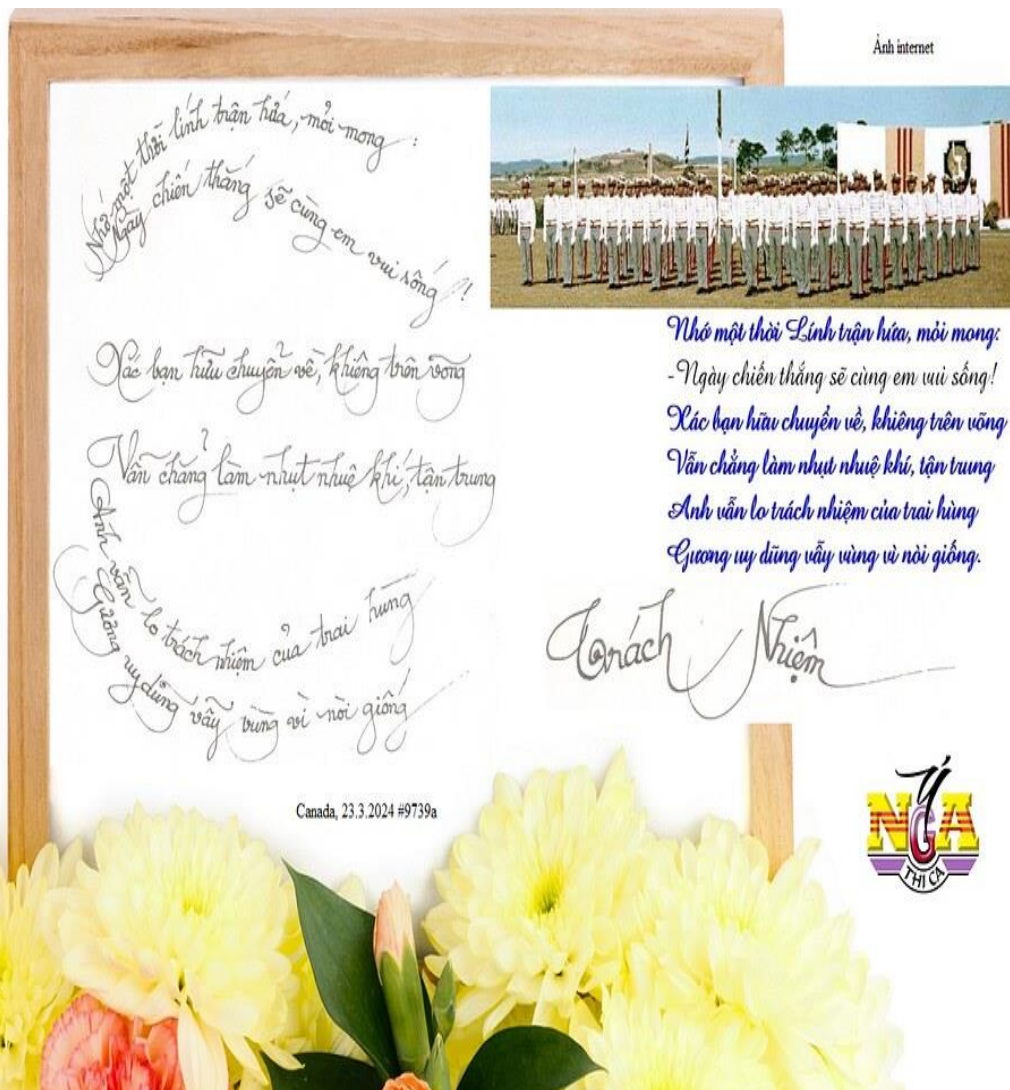 Ảnh internet
Nhớ một thời lính trận hứa, mỏi mong :
Ngày chiến thắng sẽ cùng em vui sống !
Xác bạn hữu chuyển về, khiêng trên võng
Vẫn chẳng làm nhụt nhuệ khí, tận trung
Anh vẫn lo trách nhiệm của trai hùng
Gương uy dũng vẫy vùng vì nòi giống
Nhớ một thời Lính trận hứa, mỏi mong:
-Ngày chiến thắng sẽ cùng em vui sống!
Xác bạn hữu chuyển về, khiêng trên võng
Vẫn chẳng làm nhụt nhuệ khí, tận trung
Anh vẫn lo trách nhiệm của trai hùng
Gương uy dũng vẫy vùng vì nòi giống.
Trách Nhiệm
Canada, 23.3.2024 #9739a
Ý
NGA
THI CA